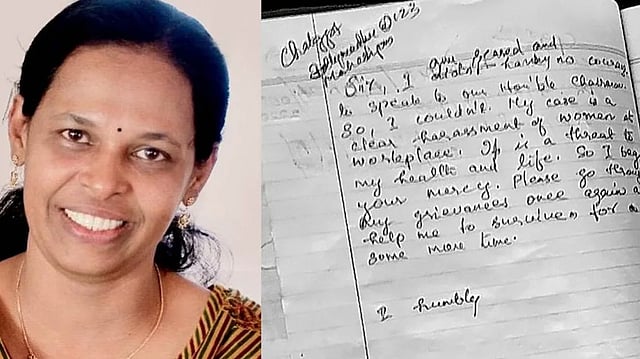 Sir, I am scared and
having no courage
to speak to our Hon'ble Chairman.
So, I couldn't. My case is a
clear harassment of women at
workplace. It is a threat to
my health and life. So I beg
your mercy. Please go thro
my grievances once again a
help me to survive for a
some more time.
I humbly